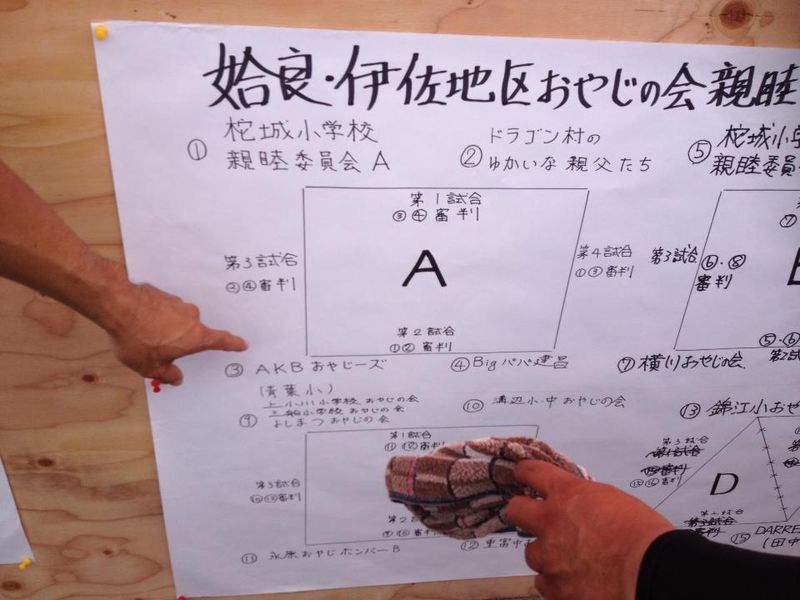 姶良・伊佐地区おやじの会 親睦
① 柁城小学校
親睦委員会 A
② ドラゴン村の
ゆかいな 親父たち
⑤ 柁城小学
親睦委員
第1試合
③ ④ 審判
第3試合
② ④ 審判
A
第4試合
① ③ 審判
第2試合
① ② 審判
第3試合
⑥・⑧
審判
⑦
⑤・⑥
③ AKB おやじーズ
(青葉小)
④ Big パパ建昌
⑦ 横川おやじの会
⑨
上小川小学校 おやじの会
三船小学校 おやじの会
よしまつ おやじの会
⑩ 溝辺小・中 おやじの会
⑬ 錦江小おや
第1試合
⑪ ⑫ 審判
第3試合
⑩ ⑫ 審判
第2
第3試合
⑮ ⑯ 審判
D
⑪ 永原おやじボンバーB
⑫ 重富中お
⑮ DARRE
(田中